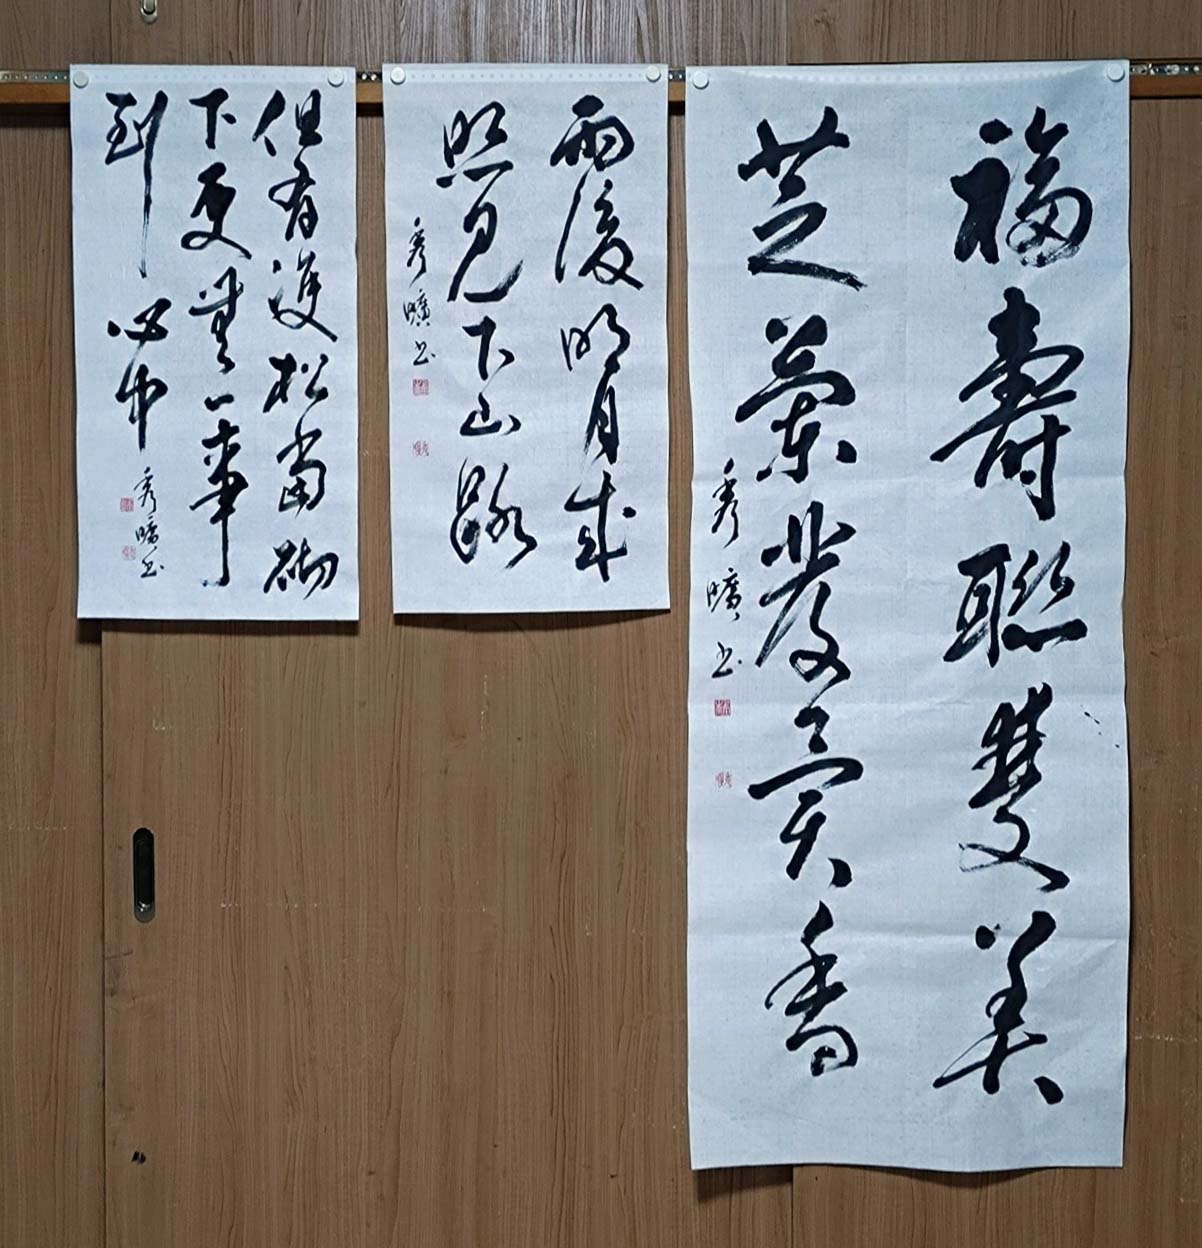 福壽聯雙美
芝蘭發異香
秀曠书
雨後明月來
照見下山路
秀曠书
但有雙松當砌
下更無一事
到心中
秀曠书